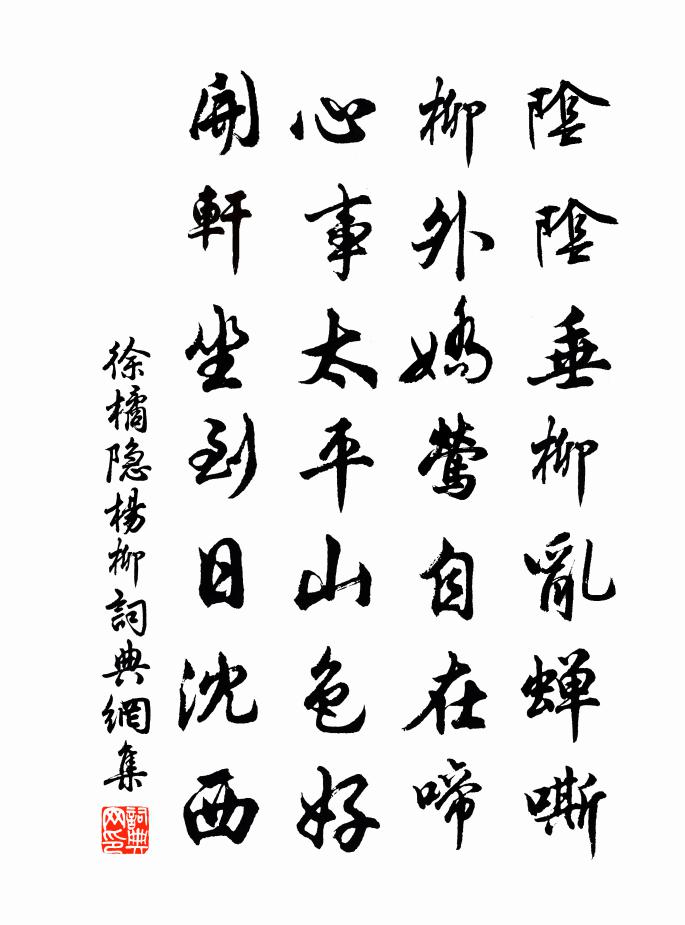 陰陰垂柳亂蟬嘶
柳外嬌鶯自在啼
心事太平山色好
開軒坐到日沈西
徐橘隐楊柳詞典網集
詞典网印